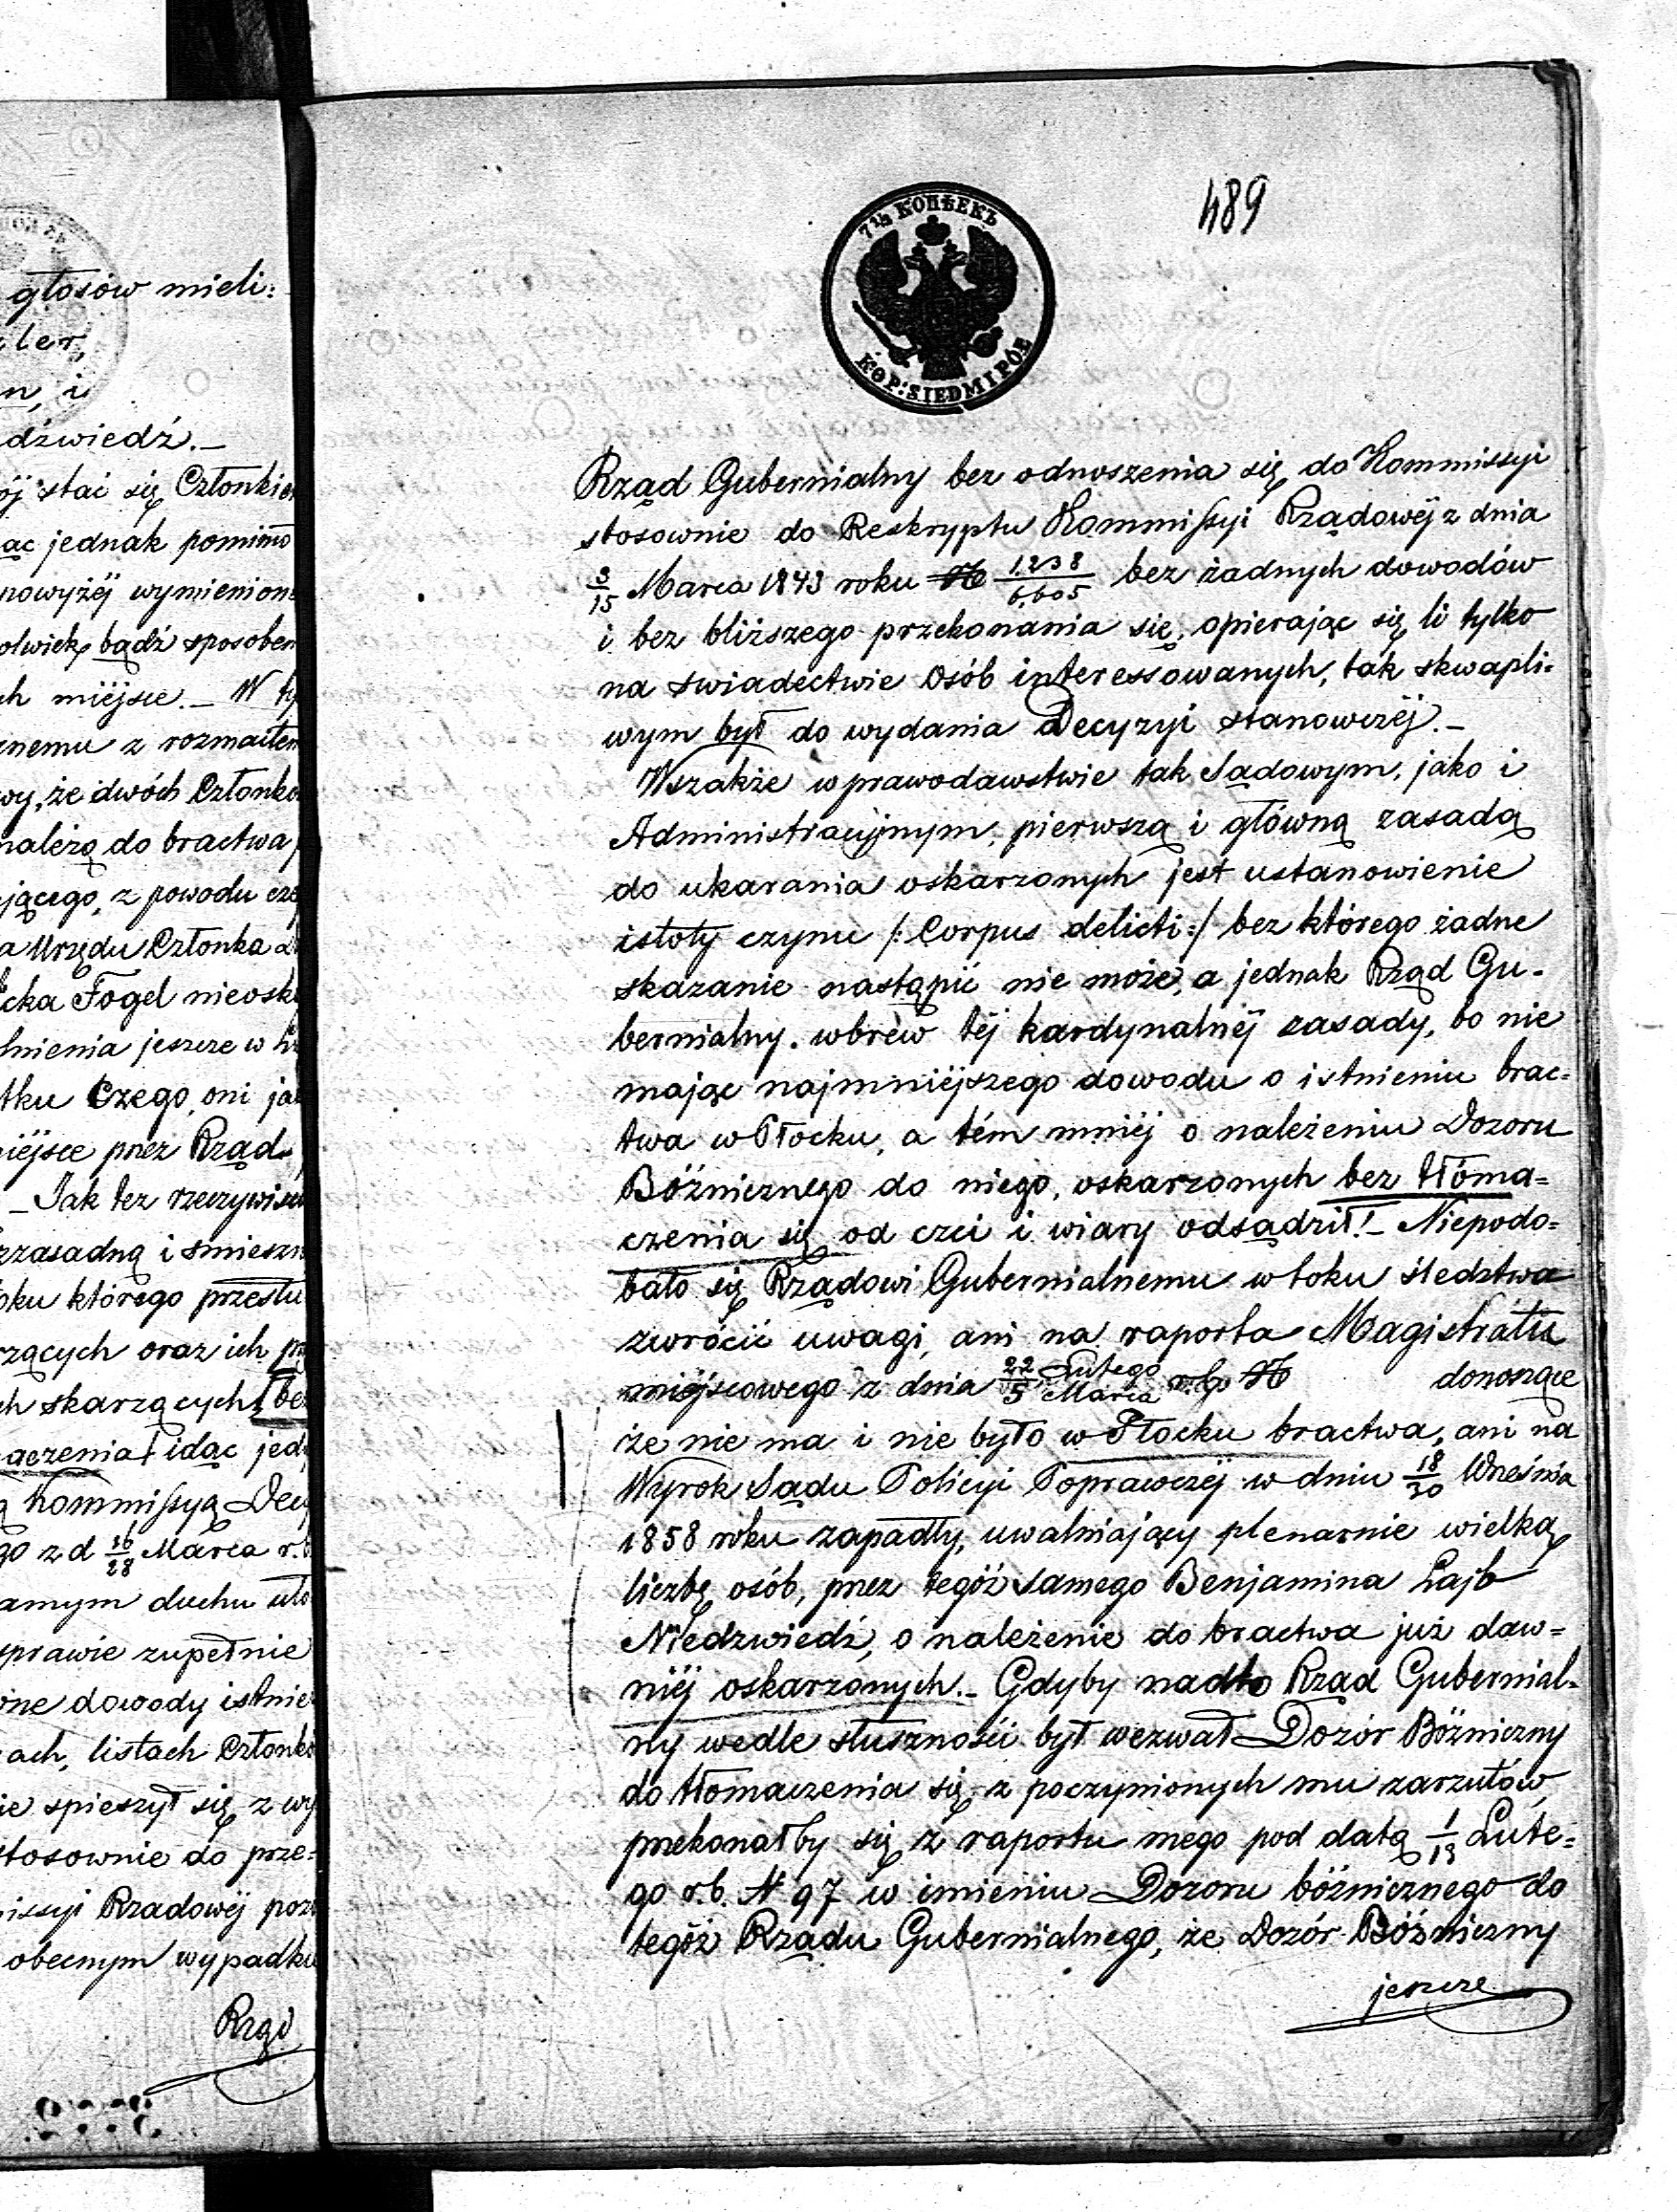 głosów mieli:
ler,
n, i
dźwiedź._
ój stać się Członkie
ąc jednak pomimo
nowyżéj wymienion
olwiek bądź sposobem
ch miéjsce._ W ty
nemu z rozmaitem
wy, że dwóch Członkó
należą do bractwa
jącego, z powodu
a Urzędu Członka
cka Fogel nieosk
łnienia jeszcze w
tku Czego, oni ja
iéjsce przez Rząd
_Jak też rzeczywiś
zasadną i śmieszn
oku którego przesłu
rzących oraz ich
ch skarżących be
aczenia idąc jed
ą Kommissyą Decy
go z d 16/28 Marca r.b.
amym duchu uło
sprawie zupełnie
ne dowody istnie
ach, listach Członkó
ie spieszył się z wy
stosownie do prze=
issyi Rządowéj
obecnym wypadku
Rząd
489
7½ КОПѢЕКЪ
KOP: SIEDM I PÓŁ
Rząd Gubernialny bez odnoszenia się do Kommissyi
stosownie do Reskryptu Kommissyi Rządowéj z dnia
3/15 Marca 1843 roku N 1238/6,605 bez żadnych dowodów
i bez bliższego przekonania się, opierając się li tylko
na swiadectwie Osób interessowanych, tak skwapli=
wym był do wydania Decyzyi stanowczéj._
Wszakże w prawodawstwie tak Sądowym, jako i
Administracyjnym, pierwszą i główną zasadą
do ukarania oskarzonych jest ustanowienie
istoty czynu /:Corpus delicti:/ bez którego żadne
skazanie nastąpić nie może, a jednak Rząd Gu-
bernialny. wbrew téj kardynalnéj zasady, bo nie
mając najmniéjszego dowodu o istnieniu brac=
twa w Płocku, a tém mniéj o należeniu Dozoru
Bóżnicznego do niego, oskarzonych bez tłóma=
czenia się od czci i wiary odsądził!_ Niepodo=
bało się Rządowi Gubernialnemu w toku śledztwa
zwrócić uwagi, ani na raporta Magistratu
miéjscowego z dnia 22 Lutego/5 Marca r.b. N donoszące
że nie ma i nie było w Płocku bractwa, ani na
Wyrok Sądu Policyi Poprawczéj w dniu 18/30 Wreśnia
1858 roku zapadły, uwalniający plenarnie wielką
liczbę osób, przez tegóż samego Benjamina Lajb
Niedzwiedź, o należenie do bractwa już daw=
niéj oskarzonych._ Gdyby nadto Rząd Gubernial=
ny wedle słuszności był wezwał Dozór Bóżniczny
do tłomaczenia się z poczynionych mu zarzutów,
przekonałby się z raportu mego pod datą 1/13 Lute=
go r.b. N 97 w imieniu Dozoru bóżnicznego do
tegóż Rządu Gubernialnego, że Dozór Bóżniczny
jeszcze